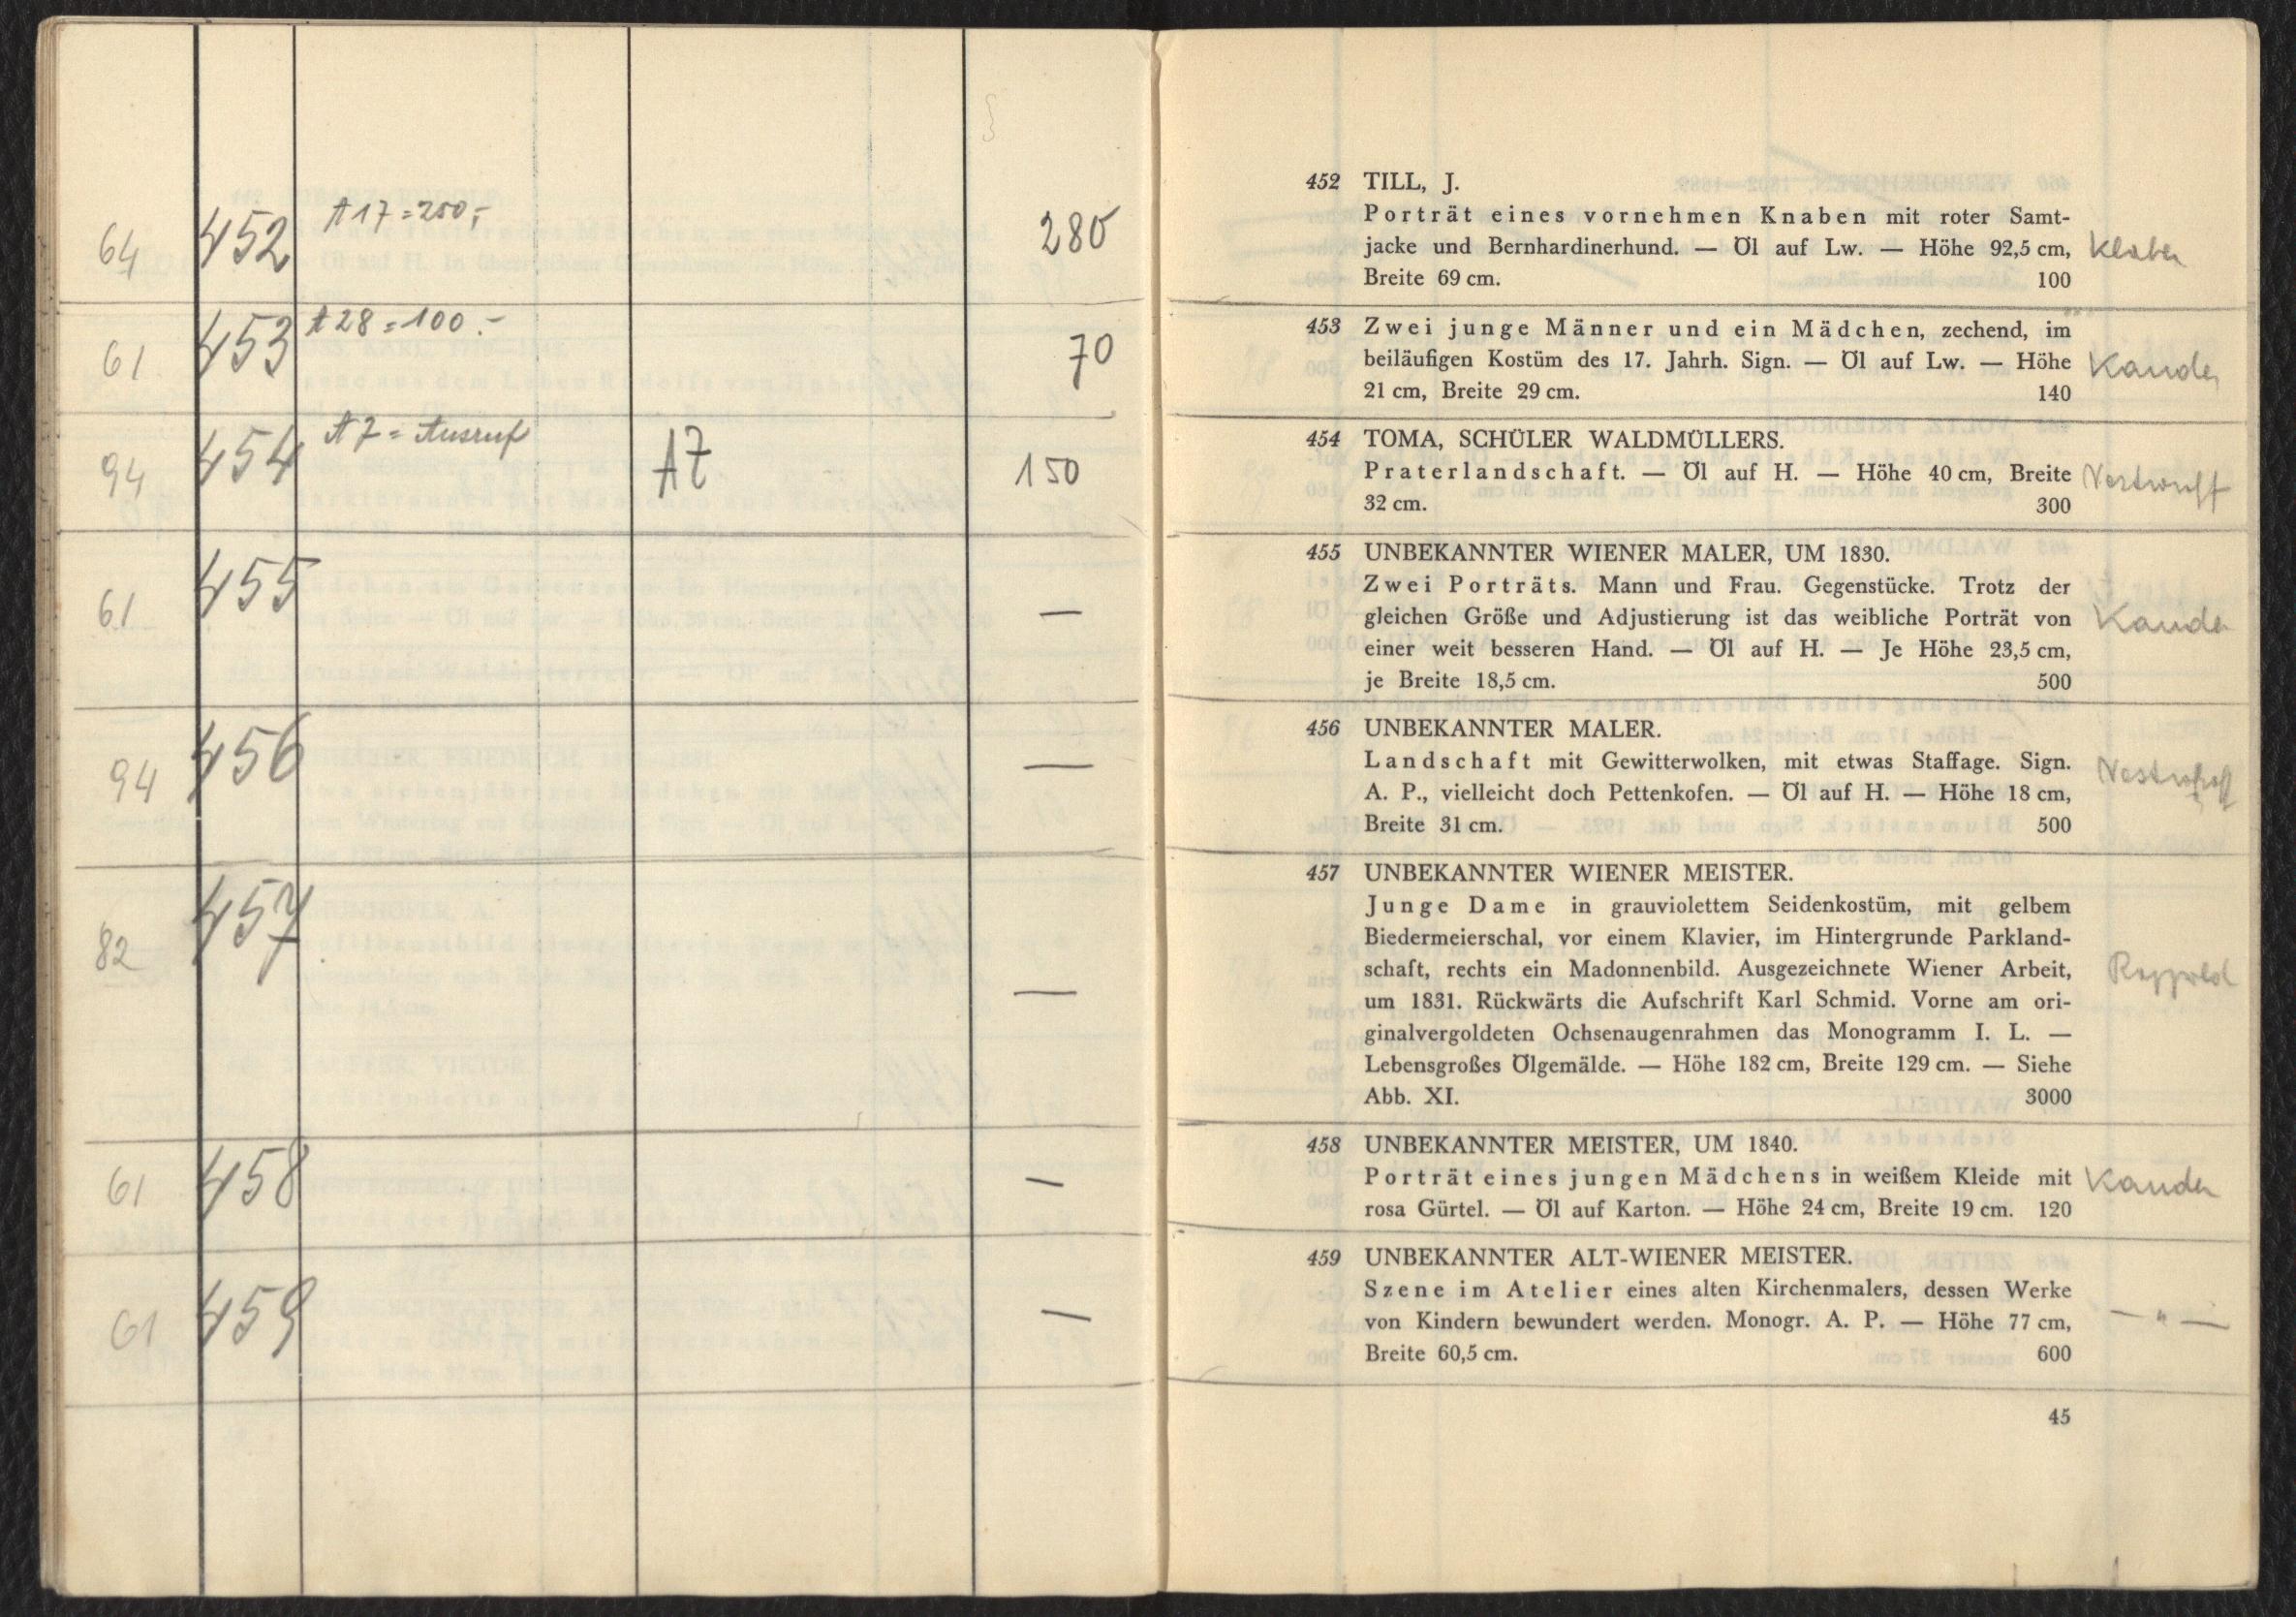 64 452 A17=250,- 280
61 453 A28=100.- 70
94 454 A7=Ausruf A7 150
61 455 —
94 456 —
82 457 —
61 458 —
61 459 —
452 TILL, J.
Porträt eines vornehmen Knaben mit roter Samt-
jacke und Bernhardinerhund. — Öl auf Lw. — Höhe 92,5 cm,
Breite 69 cm. 100
453 Zwei junge Männer und ein Mädchen, zechend, im
beiläufigen Kostüm des 17. Jahrh. Sign. — Öl auf Lw. — Höhe
21 cm, Breite 29 cm. 140
454 TOMA, SCHÜLER WALDMÜLLERS.
Praterlandschaft. — Öl auf H. — Höhe 40 cm, Breite
32 cm. 300
455 UNBEKANNTER WIENER MALER, UM 1830.
Zwei Porträts. Mann und Frau. Gegenstücke. Trotz der
gleichen Größe und Adjustierung ist das weibliche Porträt von
einer weit besseren Hand. — Öl auf H. — Je Höhe 23,5 cm,
je Breite 18,5 cm. 500
456 UNBEKANNTER MALER.
Landschaft mit Gewitterwolken, mit etwas Staffage. Sign.
A. P., vielleicht doch Pettenkofen. — Öl auf H. — Höhe 18 cm,
Breite 31 cm. 500
457 UNBEKANNTER WIENER MEISTER.
Junge Dame in grauviolettem Seidenkostüm, mit gelbem
Biedermeierschal, vor einem Klavier, im Hintergrunde Parkland-
schaft, rechts ein Madonnenbild. Ausgezeichnete Wiener Arbeit,
um 1831. Rückwärts die Aufschrift Karl Schmid. Vorne am ori-
ginalvergoldeten Ochsenaugenrahmen das Monogramm I. L. —
Lebensgroßes Ölgemälde. — Höhe 182 cm, Breite 129 cm. — Siehe
Abb. XI. 3000
458 UNBEKANNTER MEISTER, UM 1840.
Porträt eines jungen Mädchens in weißem Kleide mit
rosa Gürtel. — Öl auf Karton. — Höhe 24 cm, Breite 19 cm. 120
459 UNBEKANNTER ALT-WIENER MEISTER.
Szene im Atelier eines alten Kirchenmalers, dessen Werke
von Kindern bewundert werden. Monogr. A. P. — Höhe 77 cm, — " —
Breite 60,5 cm. 600
45